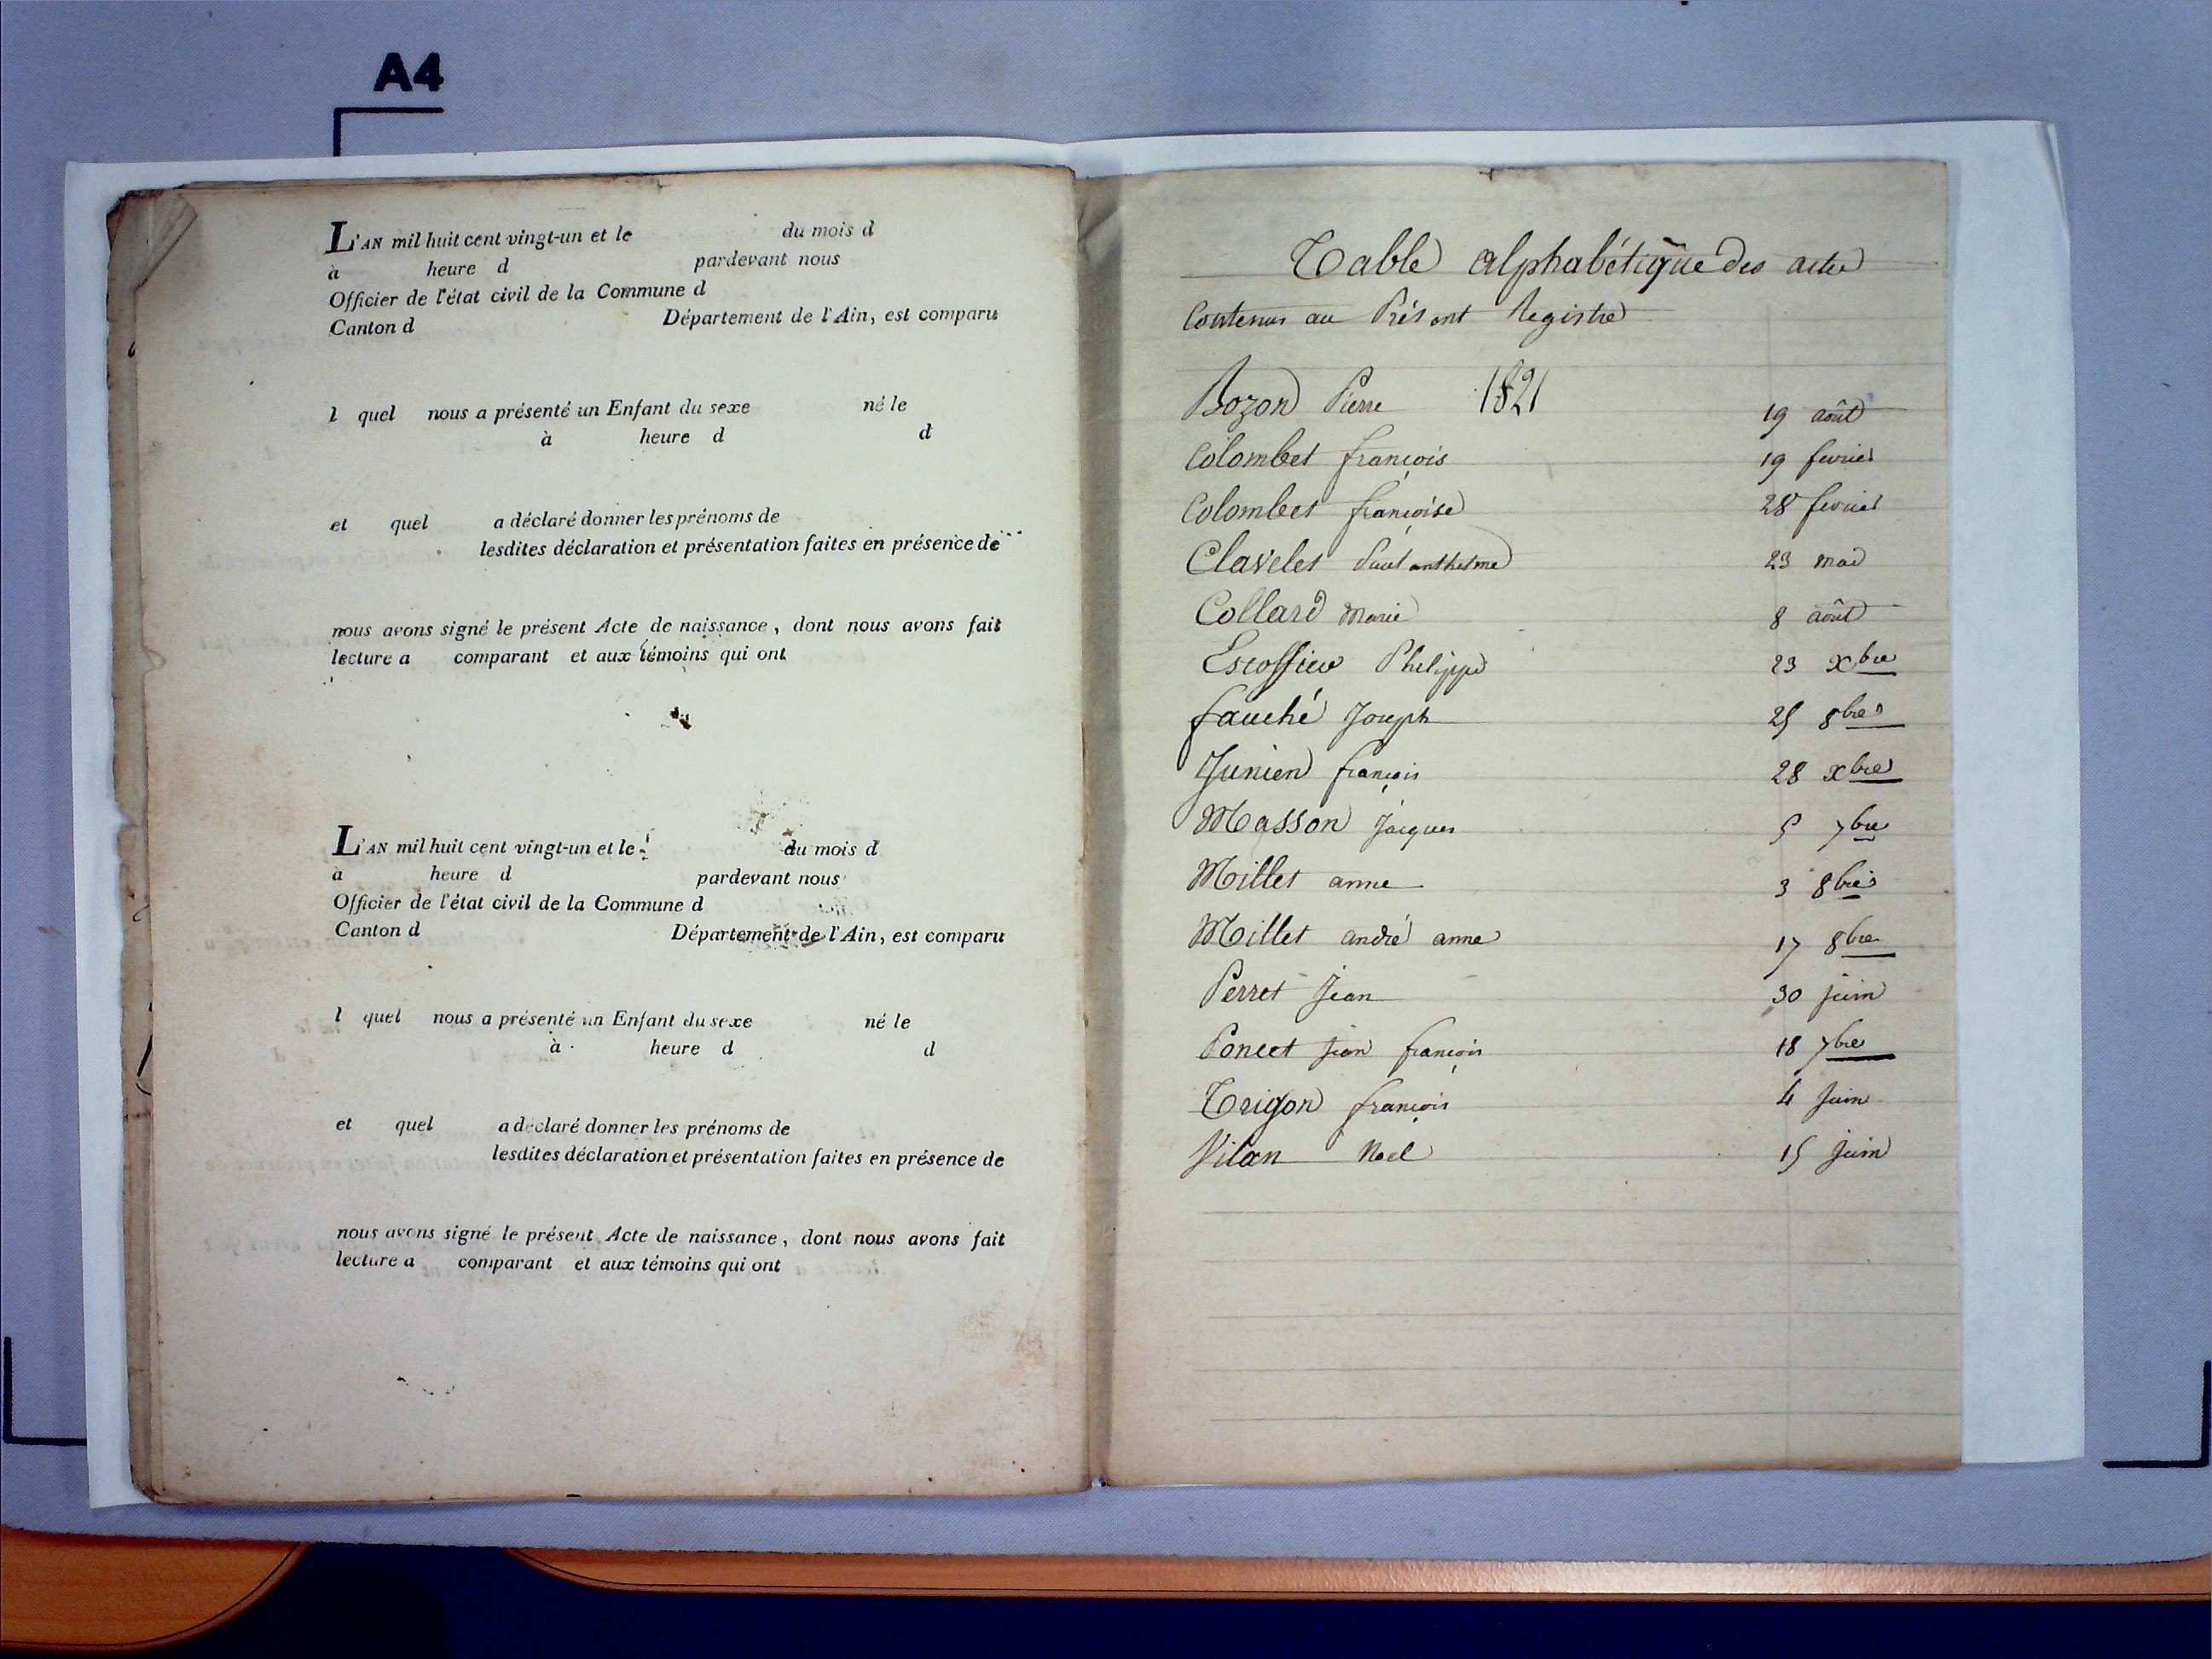 A4
L'AN mil huit cent vingt-un et le du mois d
à heure d pardevant nous
Officier de l'état civil de la Commune d
Canton d Département de l'Ain, est comparu
l quel nous a présenté un Enfant du sexe né le
à heure d d
et quel a déclaré donner les prénoms de
lesdites déclaration et présentation faites en présence de
nous avons signé le présent Acte de naissance, dont nous avons fait
lecture a comparant et aux témoins qui ont
L'AN mil huit cent vingt-un et le du mois d
à heure d pardevant nous
Officier de l'état civil de la Commune d
Canton d Département de l'Ain, est comparu
l quel nous a présenté un Enfant du sexe né le
à heure d d
et quel a déclaré donner les prénoms de
lesdites déclaration et présentation faites en présence de
nous avons signé le présent Acte de naissance, dont nous avons fait
lecture a comparant et aux témoins qui ont
Table alphabétique des acte
Contenus au Présent Registre
Bozon Pierre 1821 19 août
Colombet françois 19 fevrier
Colombet françoise 28 fevrier
Clavelet Paul anthelme 23 mai
Collard Marie 8 août
Escoffier Philippe 23 xbre
fauché Joseph 25 8bre
Junien françois 28 xbre
Masson Jacques 5 7bre
Millet anne 3 8bre
Millet andré anne 17 8bre
Perret Jean 30 juin
Poncet jean françois 18 7bre
Trigon françois 4 Juin
Vilan Noel 15 juin